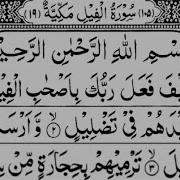 (١٠٥) سُوْرَةُ الْفِيْلِ مَكِّيَّةٌ (١٩)
سْمِ اللهِ الرَّحْمٰنِ الرَّحِيْ
يْفَ فَعَلَ رَبُّكَ بِاَصْحٰبِ الْفِيْ
يْدَهُمْ فِيْ تَضْلِيْلٍ ۙ ٢ وَّ اَرْسَ
لَ ۙ ٣ تَرْمِيْهِمْ بِحِجَارَةٍ مِّنْ سِ